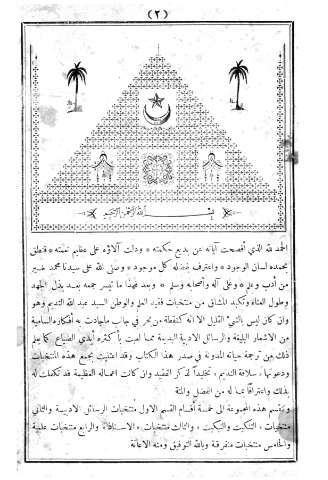 (٢)
بسم الله الرحمن الرحيم
الحمد لله الذي أفصحت آياته عن بديع حكمته * ودلت آلاؤه على عظيم نعمته * فنطق
بحمده لسان الوجود * واعترف بفضله كل موجود * وصلى الله على سيدنا محمد خير
من أدب وعلم * وعلى آله وأصحابه وسلم * وبعد فهذا ما تيسر جمعه بعد بذل الجهد
وطول العناء وتكبد المشاق من منتخبات فقيد العلم والوطن السيد عبد الله النديم وهو
وان كان ليس بالشيء القليل الا انه كنقطة من بحر في جانب ما جادت به أفكاره السامية
من الاشعار البليغة والرسائل الادبية البديعة مما لعبت بأكثره أيدي الضياع كما علم
ذلك من ترجمة حياته المدونة في صدر هذا الكتاب وقد اعتنيت بجمع هذه المنتخبات
ودعوتها، سلافة النديم، تخليداً لذكر الفقيد وان كانت اعماله العظيمة قد تكفلت له
بذلك واعترافاً بما له من الفضل والمنة
وتنقسم هذه المجموعة الى خمسة أقسام القسم الاول منتخبات الرسائل الادبية والثاني
منتخبات، التنكيت والتبكيت، والثالث منتخبات، الاستاذ، والرابع منتخبات علمية
والخامس منتخبات متفرقة وبالله التوفيق ومنه الاعانة